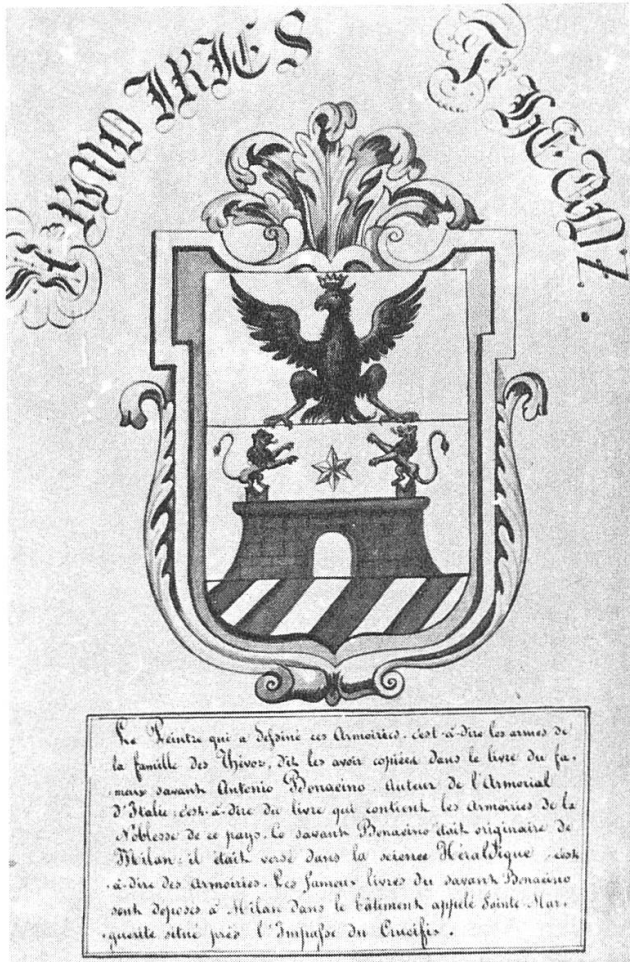 ARMOIRIES THEVOZ.
Le Peintre qui a dessiné ces Armoiries, c'est-à-dire les armes de
la famille des Thévoz, dit les avoir copiées dans le livre du fa-
-meux savant Antonio Bonacino. Auteur de l'Armorial
d'Italie; c'est-à-dire du livre qui contient les Armoiries de la
Noblesse de ce pays. Le savant Bonacino était originaire de
Milan: il était versé dans la science Héraldique, c'est
-à-dire des Armoiries. Les fameux livres du savant Bonacino
sont déposés à Milan dans le bâtiment appelé Sainte Mar-
-guerite situé près l'Impasse du Crucifix.